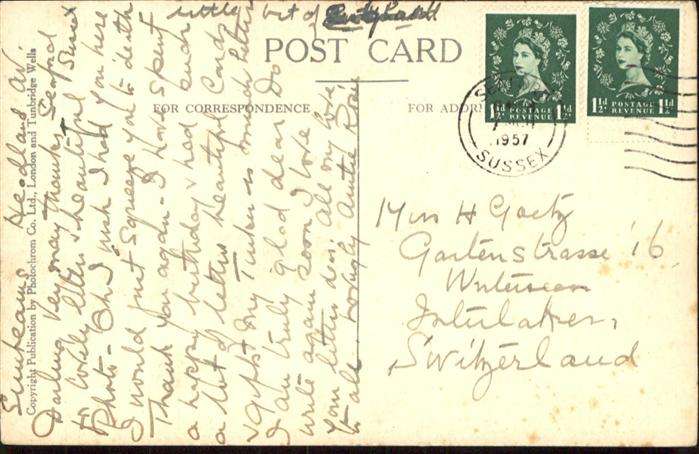 little bit of
POST CARD
FOR CORRESPONDENCE
FOR ADDR
1½d POSTAGE REVENUE 1½d
1½d POSTAGE REVENUE 1½d
1957
SUSSEX
Copyright Publication by Photochrom Co. Ltd., London and Tunbridge Wells
Sunbeams Headland Av.
Darling Very many thanks Seaford
for lovely letter & beautiful Sussex
Photo - Oh I wish I had you here
I would just squeeze you to death
Thank you again - I have spent
a happy birthday & had such
a lot of letters beautiful Cards
& gifts my Tinker is much better
I am truly glad dear Do
write again soon I love
your letters dear All my love
to all lovingly Auntie
Miss H Goetz
Gartenstrasse 16
Unterseen
Interlaken,
Switzerland